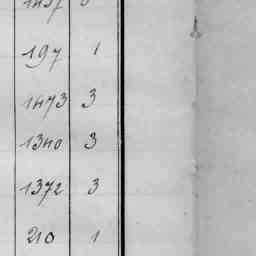 197 1
1473 3
1340 3
1372 3
210 1